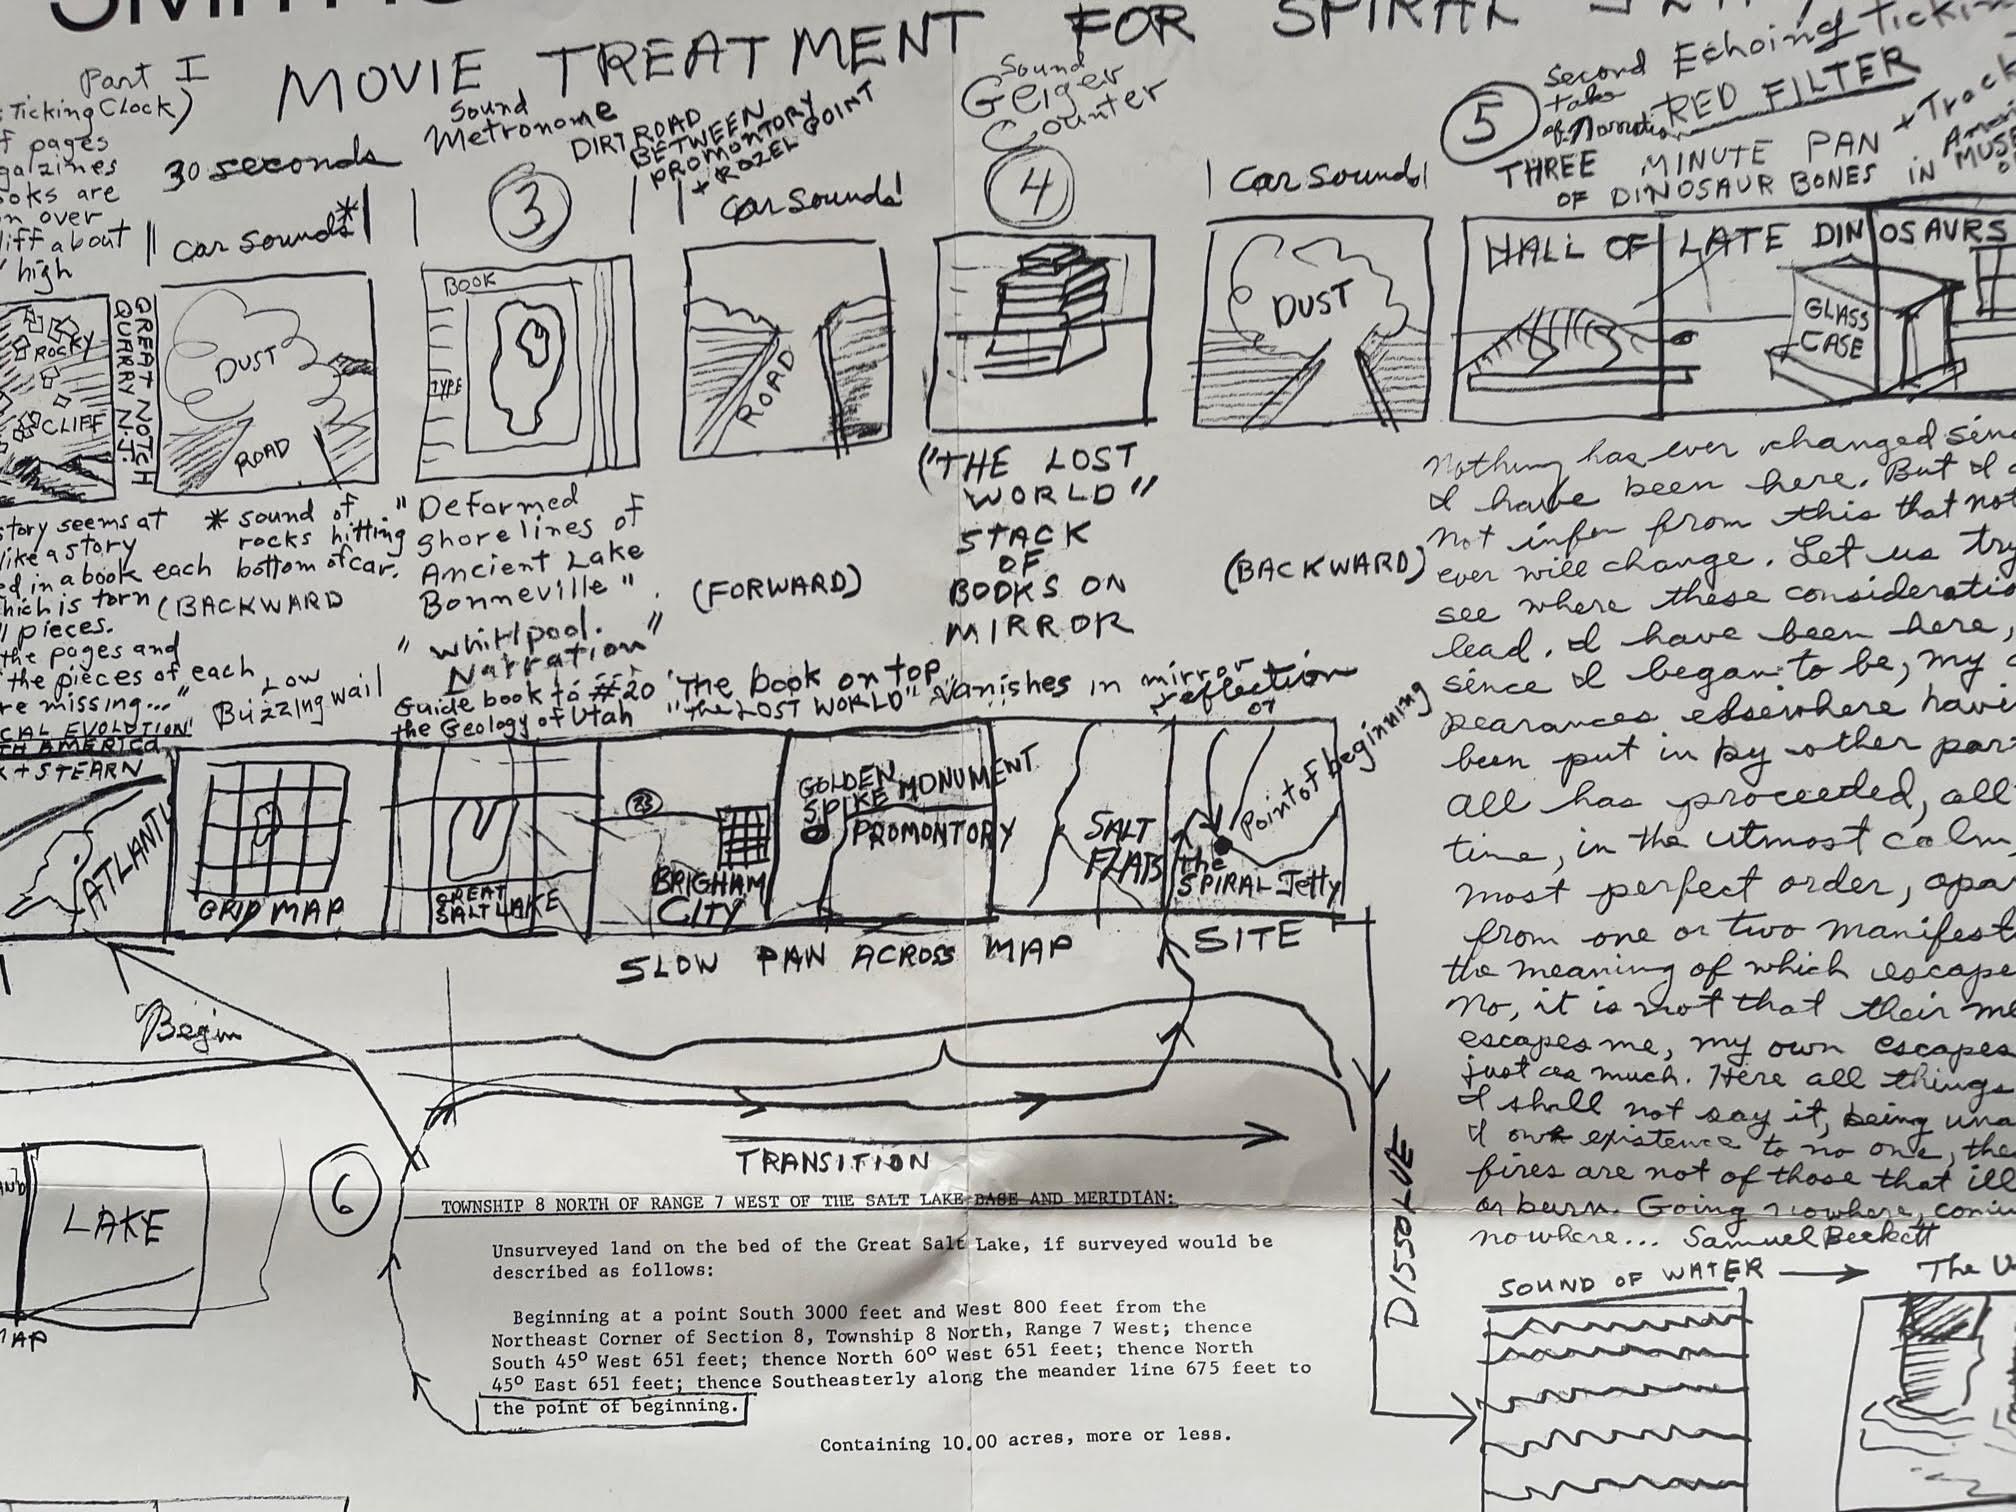 MOVIE TREATMENT FOR SPIRAL
Part I
Ticking Clock)
of pages
books are
over
cliff about
high
30 seconds
Car Sounds*
GREAT NOTCH
QUARRY N.J.
ROCKY
CLIFF
DUST
ROAD
story seems at
like a story
in a book each
which is torn
pieces.
the pages and
the pieces of each
are missing..."
* sound of
rocks hitting
bottom of car.
(BACKWARD
Low
Buzzing wail
Sound
Metronome
3
BOOK
TYPE
"Deformed
Shorelines of
Ancient Lake
Bonneville".
"Whirlpool. "
Narration
Guide book to #20
the Geology of Utah
DIRT ROAD
BETWEEN
PROMONTORY
+ ROZEL POINT
Car Sounds!
ROAD
(FORWARD)
Sound
Geiger
Counter
4
("THE LOST
WORLD"
STACK
OF
BOOKS ON
MIRROR
'The book on top
"the LOST WORLD" Vanishes in mirror
reflection
Car Sounds!
DUST
(BACKWARD)
5
second Echoing Ticking
take
of Narration RED FILTER
THREE MINUTE PAN + Track
OF DINOSAUR BONES IN
HALL OF LATE DINOSAURS
GLASS
CASE
Nothing has ever changed since
I have been here. But I
not infer from this that not
ever will change. Let us try
see where these consideratio
lead. I have been here,
since I began to be, my
pearances elsewhere having
been put in by other part
All has proceeded, all
time, in the utmost calm
most perfect order, apart
from one or two manifest
the meaning of which escape
No, it is not that their me
escapes me, my own escapes
just as much. Here all things
I shall not say it, being una
I owe existence to no one, the
fires are not of those that ill
or burn. Going nowhere, comin
nowhere... Samuel Beckett
EVOLUTION'
NORTH AMERICA
+ STEARN
ATLANTIS
GRID MAP
GREAT
SALT LAKE
83
BRIGHAM
CITY
GOLDEN
SPIKE MONUMENT
PROMONTORY
SALT
FLATS
Point of beginning
of
the
SPIRAL Jetty
SLOW PAN ACROSS MAP
SITE
Begin
TRANSITION
DISSOLVE
LAKE
MAP
6
TOWNSHIP 8 NORTH OF RANGE 7 WEST OF THE SALT LAKE BASE AND MERIDIAN:
Unsurveyed land on the bed of the Great Salt Lake, if surveyed would be
described as follows:
Beginning at a point South 3000 feet and West 800 feet from the
Northeast Corner of Section 8, Township 8 North, Range 7 West; thence
South 45° West 651 feet; thence North 60° West 651 feet; thence North
45° East 651 feet; thence Southeasterly along the meander line 675 feet to
the point of beginning.
Containing 10.00 acres, more or less.
SOUND OF WATER
The